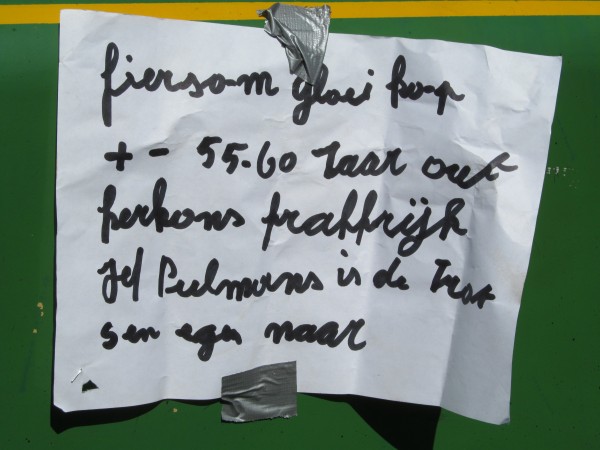 fiersom gloei kop
+ - 55-60 Jaar out
herkons frakfrijk
Jef Peelmans is de Trot
sen egen naar